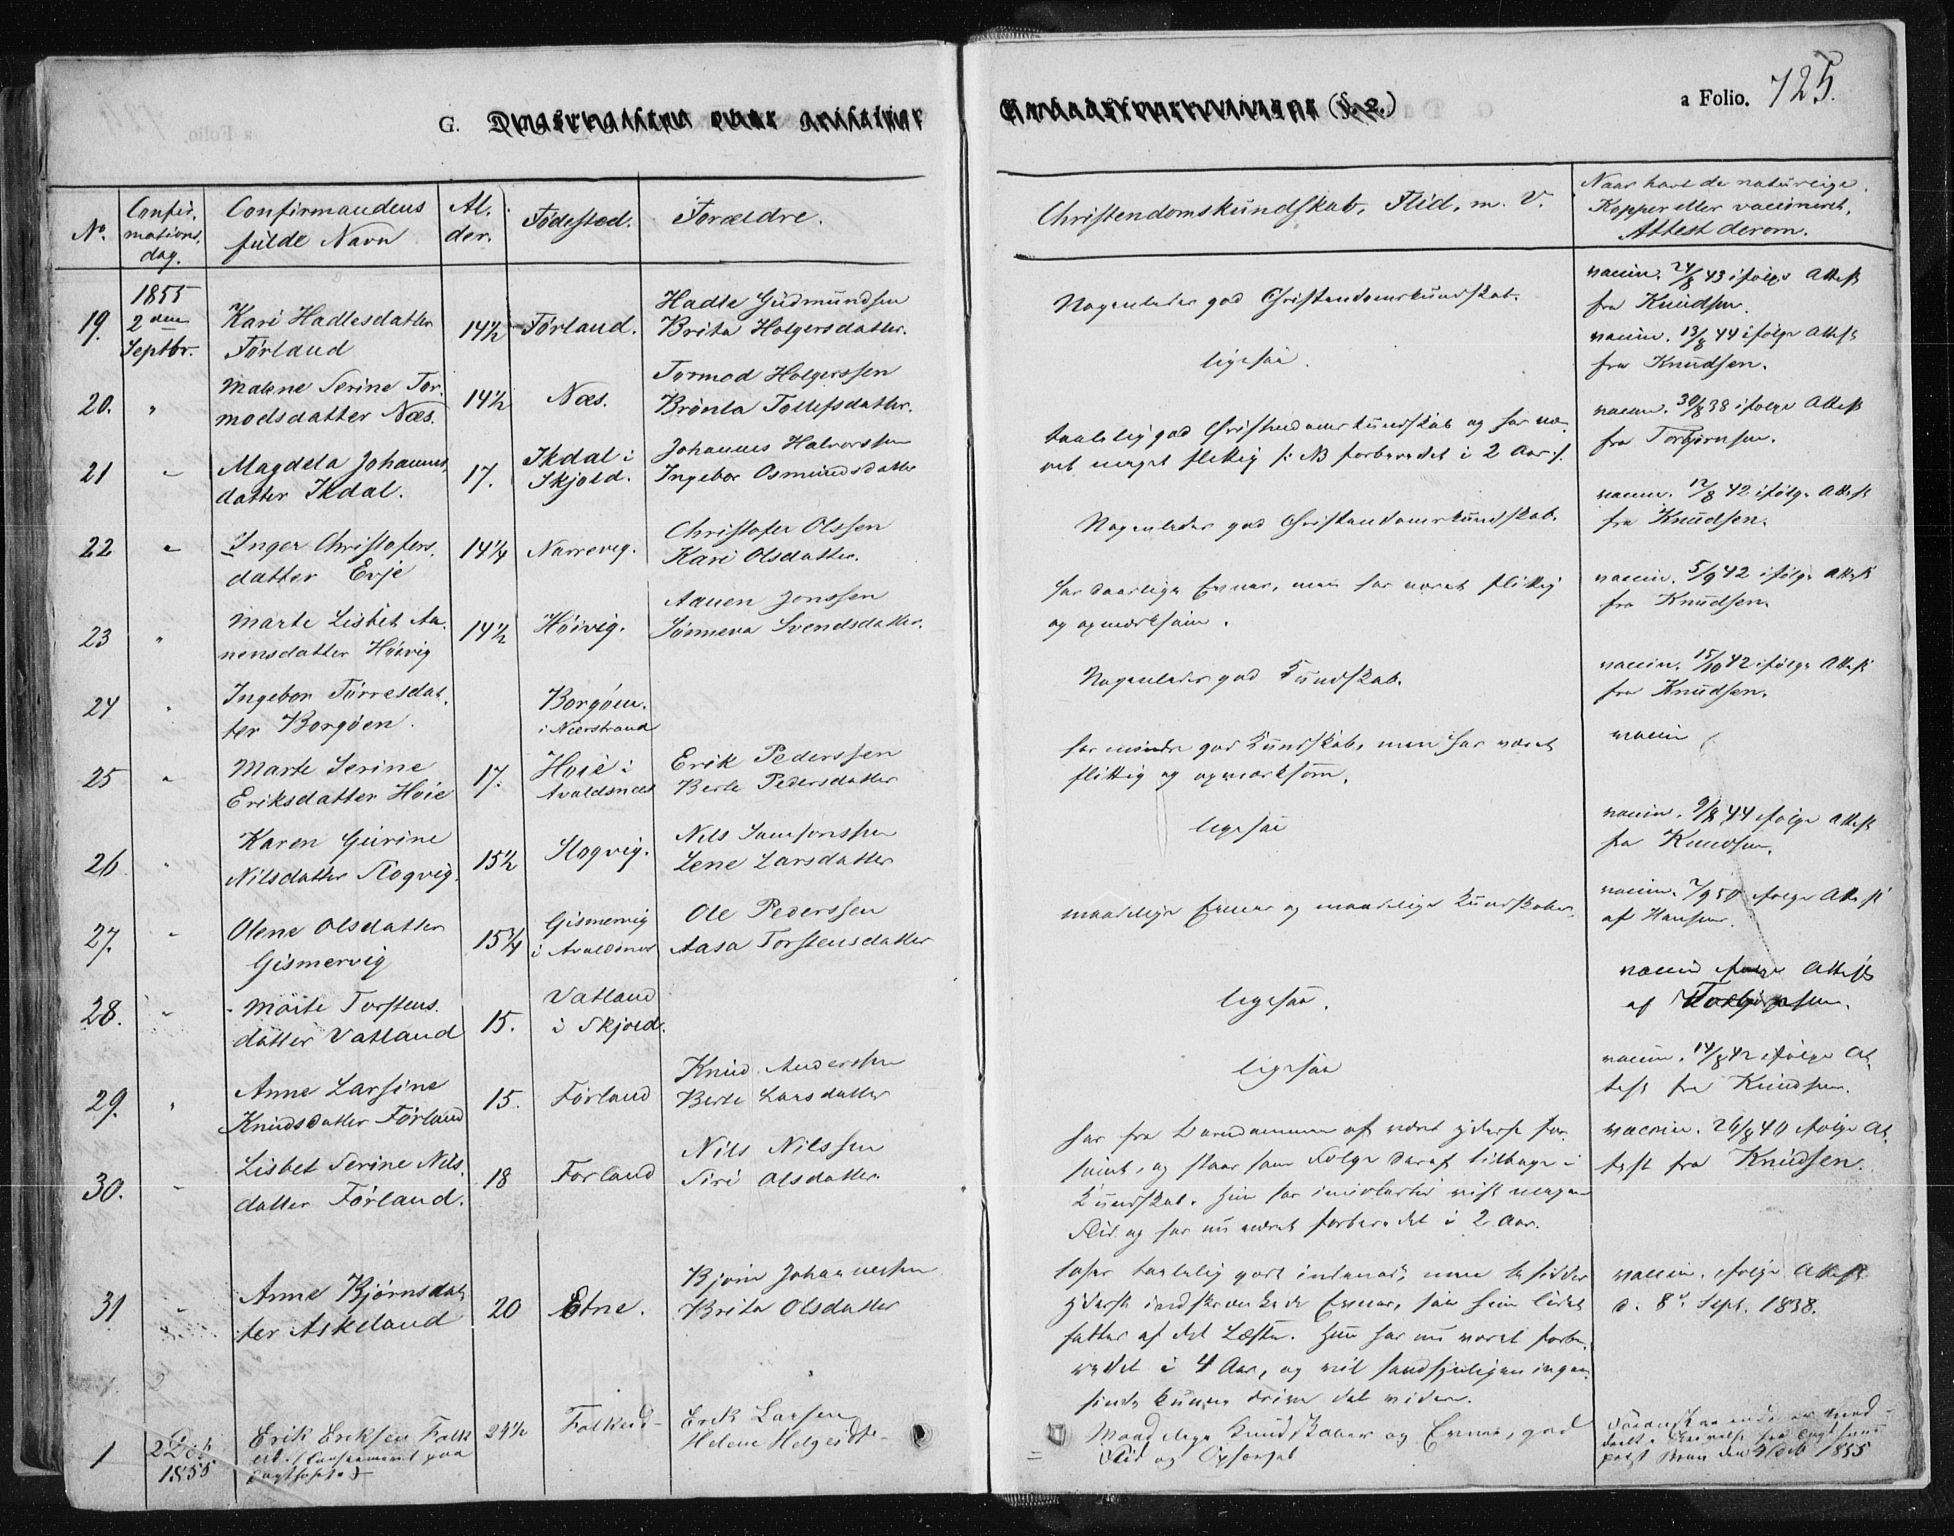 G.
a Folio. 725.
No. Confir, mations, dag. Confirmandens fulde Navn Al. der. Fødested. Forældre. Christendomskundskab, Flid, m. V. Naar havt de naturlige Kopper eller vaccineret, Attest derom.
19. 1855 2den Septbr. Kari Hadlesdatter Førland 14½ Førland. Hadle Gudmundsen Brita Holgersdatter. Nogenledes god Christendomskundskab. vaccin. 24/8 43 ifølge Attest fra Knudsen.
20. " Malene Serine Tor, modsdatter Næs. 14½ Næs. Tormod Holgerssen Brønla Tollefsdatter. ligesaa. vaccin. 13/8 44 ifølge Attest fra Knudsen.
21 " Magdela Johannes, datter Ikdal. 17. Ikdal i Skjold. Johannes Halvorssen Ingebor Osmundsdatter taalelig god Christendomskundskab og har væ, ret meget flittig /: NB forberedet i 2 Aar :/. vaccin. 30/8 38 ifølge Attest fra Torbjørnsen.
22 " Inger Christofers, datter Evje 14¼ Narrevig. Christofer Olssen Kari Olsdatter. Nogenledes god Christendomskundskab. vaccin. 12/8 42 ifølge Attest fra Knudsen.
23 " Marte Lisbet Aa, nensdatter Høivig 14½ Høivig. Aanen Jonssen Sønneva Svendsdatter. har daarlige Evner, men har været flittig og opmærksom. vaccin. 5/9 42 ifølge Attest fra Knudsen.
24 " Ingebor Tørresdat, ter Borgøen. Borgøen. i Nærstrand Nogenledes god Kundskab. vaccin. 15/10 42 ifølge Attest fra Knudsen.
25 " Marte Serine Eriksdatter Høie 17. Høie i Avaldsnes Erik Pederssen Berte Pedersdatter har mindre god Kundskab, men har været flittig og opmærksom. vaccin
26 " Karen Gurine Nilsdatter Slogvig. 15½ Slogvig. Nils Samsonssen Lene Larsdatter ligesaa vaccin. 9/8 44 ifølge Attest fra Knudsen.
27. " Olene Olsdatter Gismervig 15¾ Gismervig i Avaldsnes Ole Pederssen Aasa Torstensdatter maadelige Evner og maadelige Kundskaber. vaccin. 7/9 50 ifølge Attest af Hansen.
28. " Moite Torstens, datter Vatland 15. Vatland i Skjold. ligesaa. vaccin ifølge Attest af Torbjørnsen.
29. " Anne Larsine Knudsdatter Førland 15. Førland Knud Anderssen Berte Larsdatter ligesaa vaccin. 14/8 42 ifølge At, test fra Knudsen.
30. " Lisbet Serine Nils, datter Førland. 18 Førland Nils Nilssen Siri Olsdatter. har fra Barndommen af været yderst for, sømt, og staar som Følge deraf tilbage i Kundskab. Hun har imidlertid vist megen Flid og har nu været forberedet i 2 Aar. vaccin. 26/8 40 ifølge At, test fra Knudsen.
31 " Anne Bjørnsdat, ter Askeland 20 Etne. Bjørn Johannessen Brita Olsdatter læser taalelig godt indenad, men besidder yderst indskrænkede Evner, saa hun lidet fatter af det Læste. Hun har nu været forbe, redet i 4 Aar, og vil sandsynligen ingen, sinde kunne drive det videre. vaccin. ifølge Attest d. 8de Sept. 1838.
1 2 Dcb 1855 Erik Eriksen Falk eid. (Confirmeret paa 24½ Falkeid Erik Larsen Helene Helgesdtr Maadelige Kundskaber og Evner, god Flid og Opførsel 1855